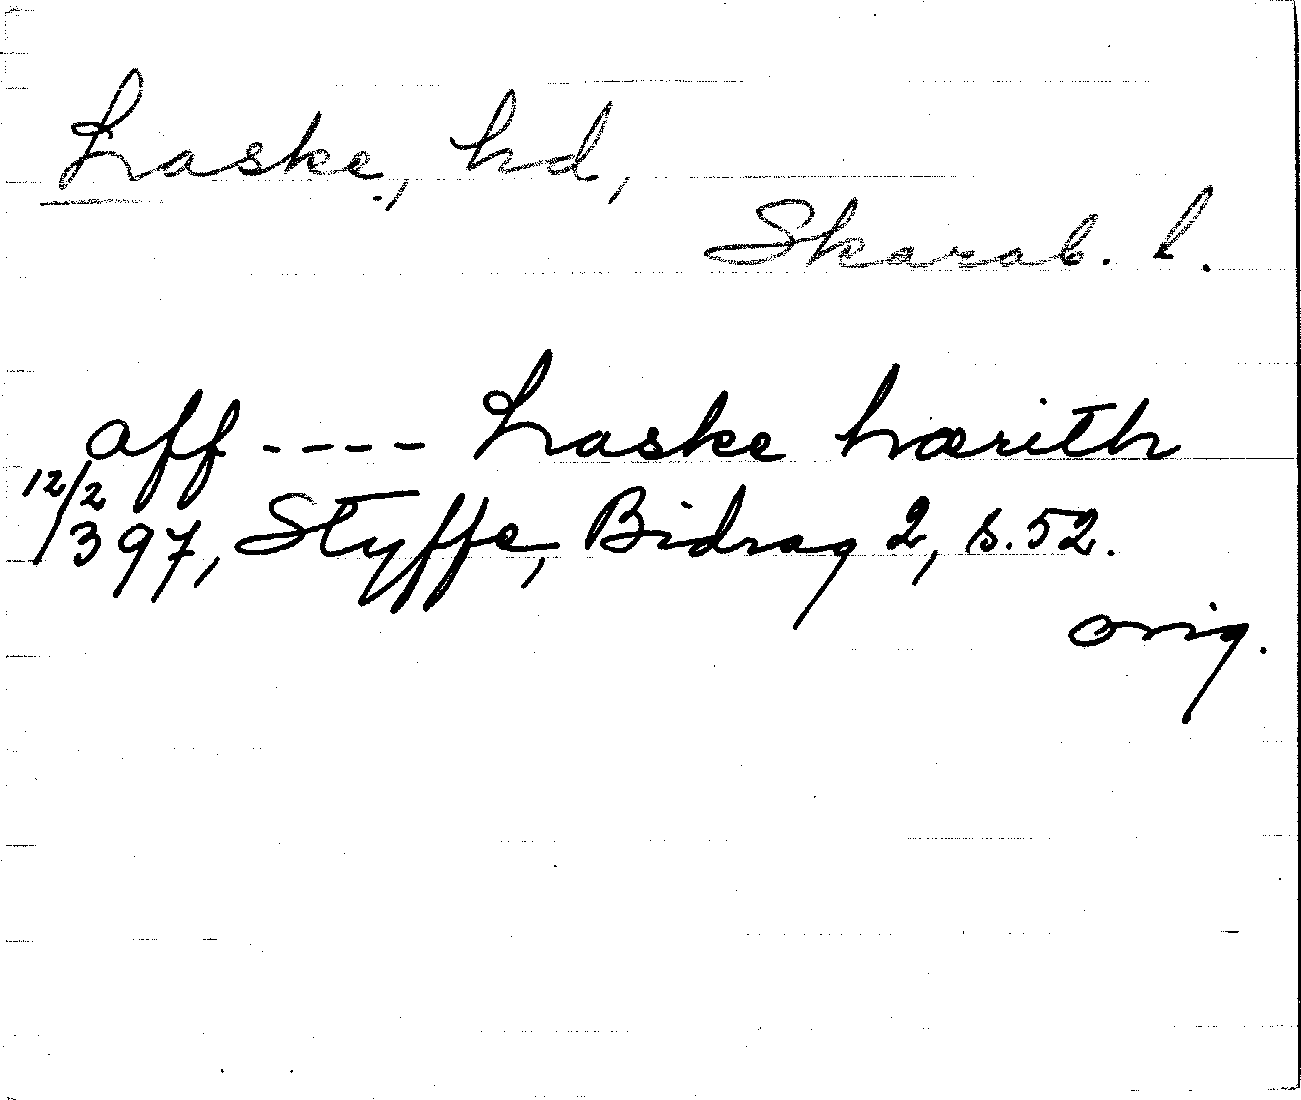 Laske, hd,
Skarab. l.
aff ---- Laske hærith
12/2 397, Styffe, Bidrag 2, s. 52.
orig.